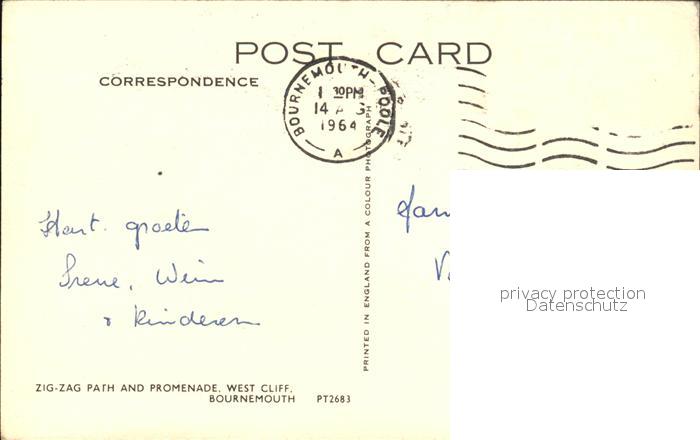 POST CARD
CORRESPONDENCE
BOURNEMOUTH - POOLE
1 30PM
14 A G
1964
A
Hart. groeten
Irene, Wim
& kinderen
PRINTED IN ENGLAND FROM A COLOUR PHOTOGRAPH
Fam
V
privacy protection
Datenschutz
ZIG-ZAG PATH AND PROMENADE, WEST CLIFF,
BOURNEMOUTH PT2683